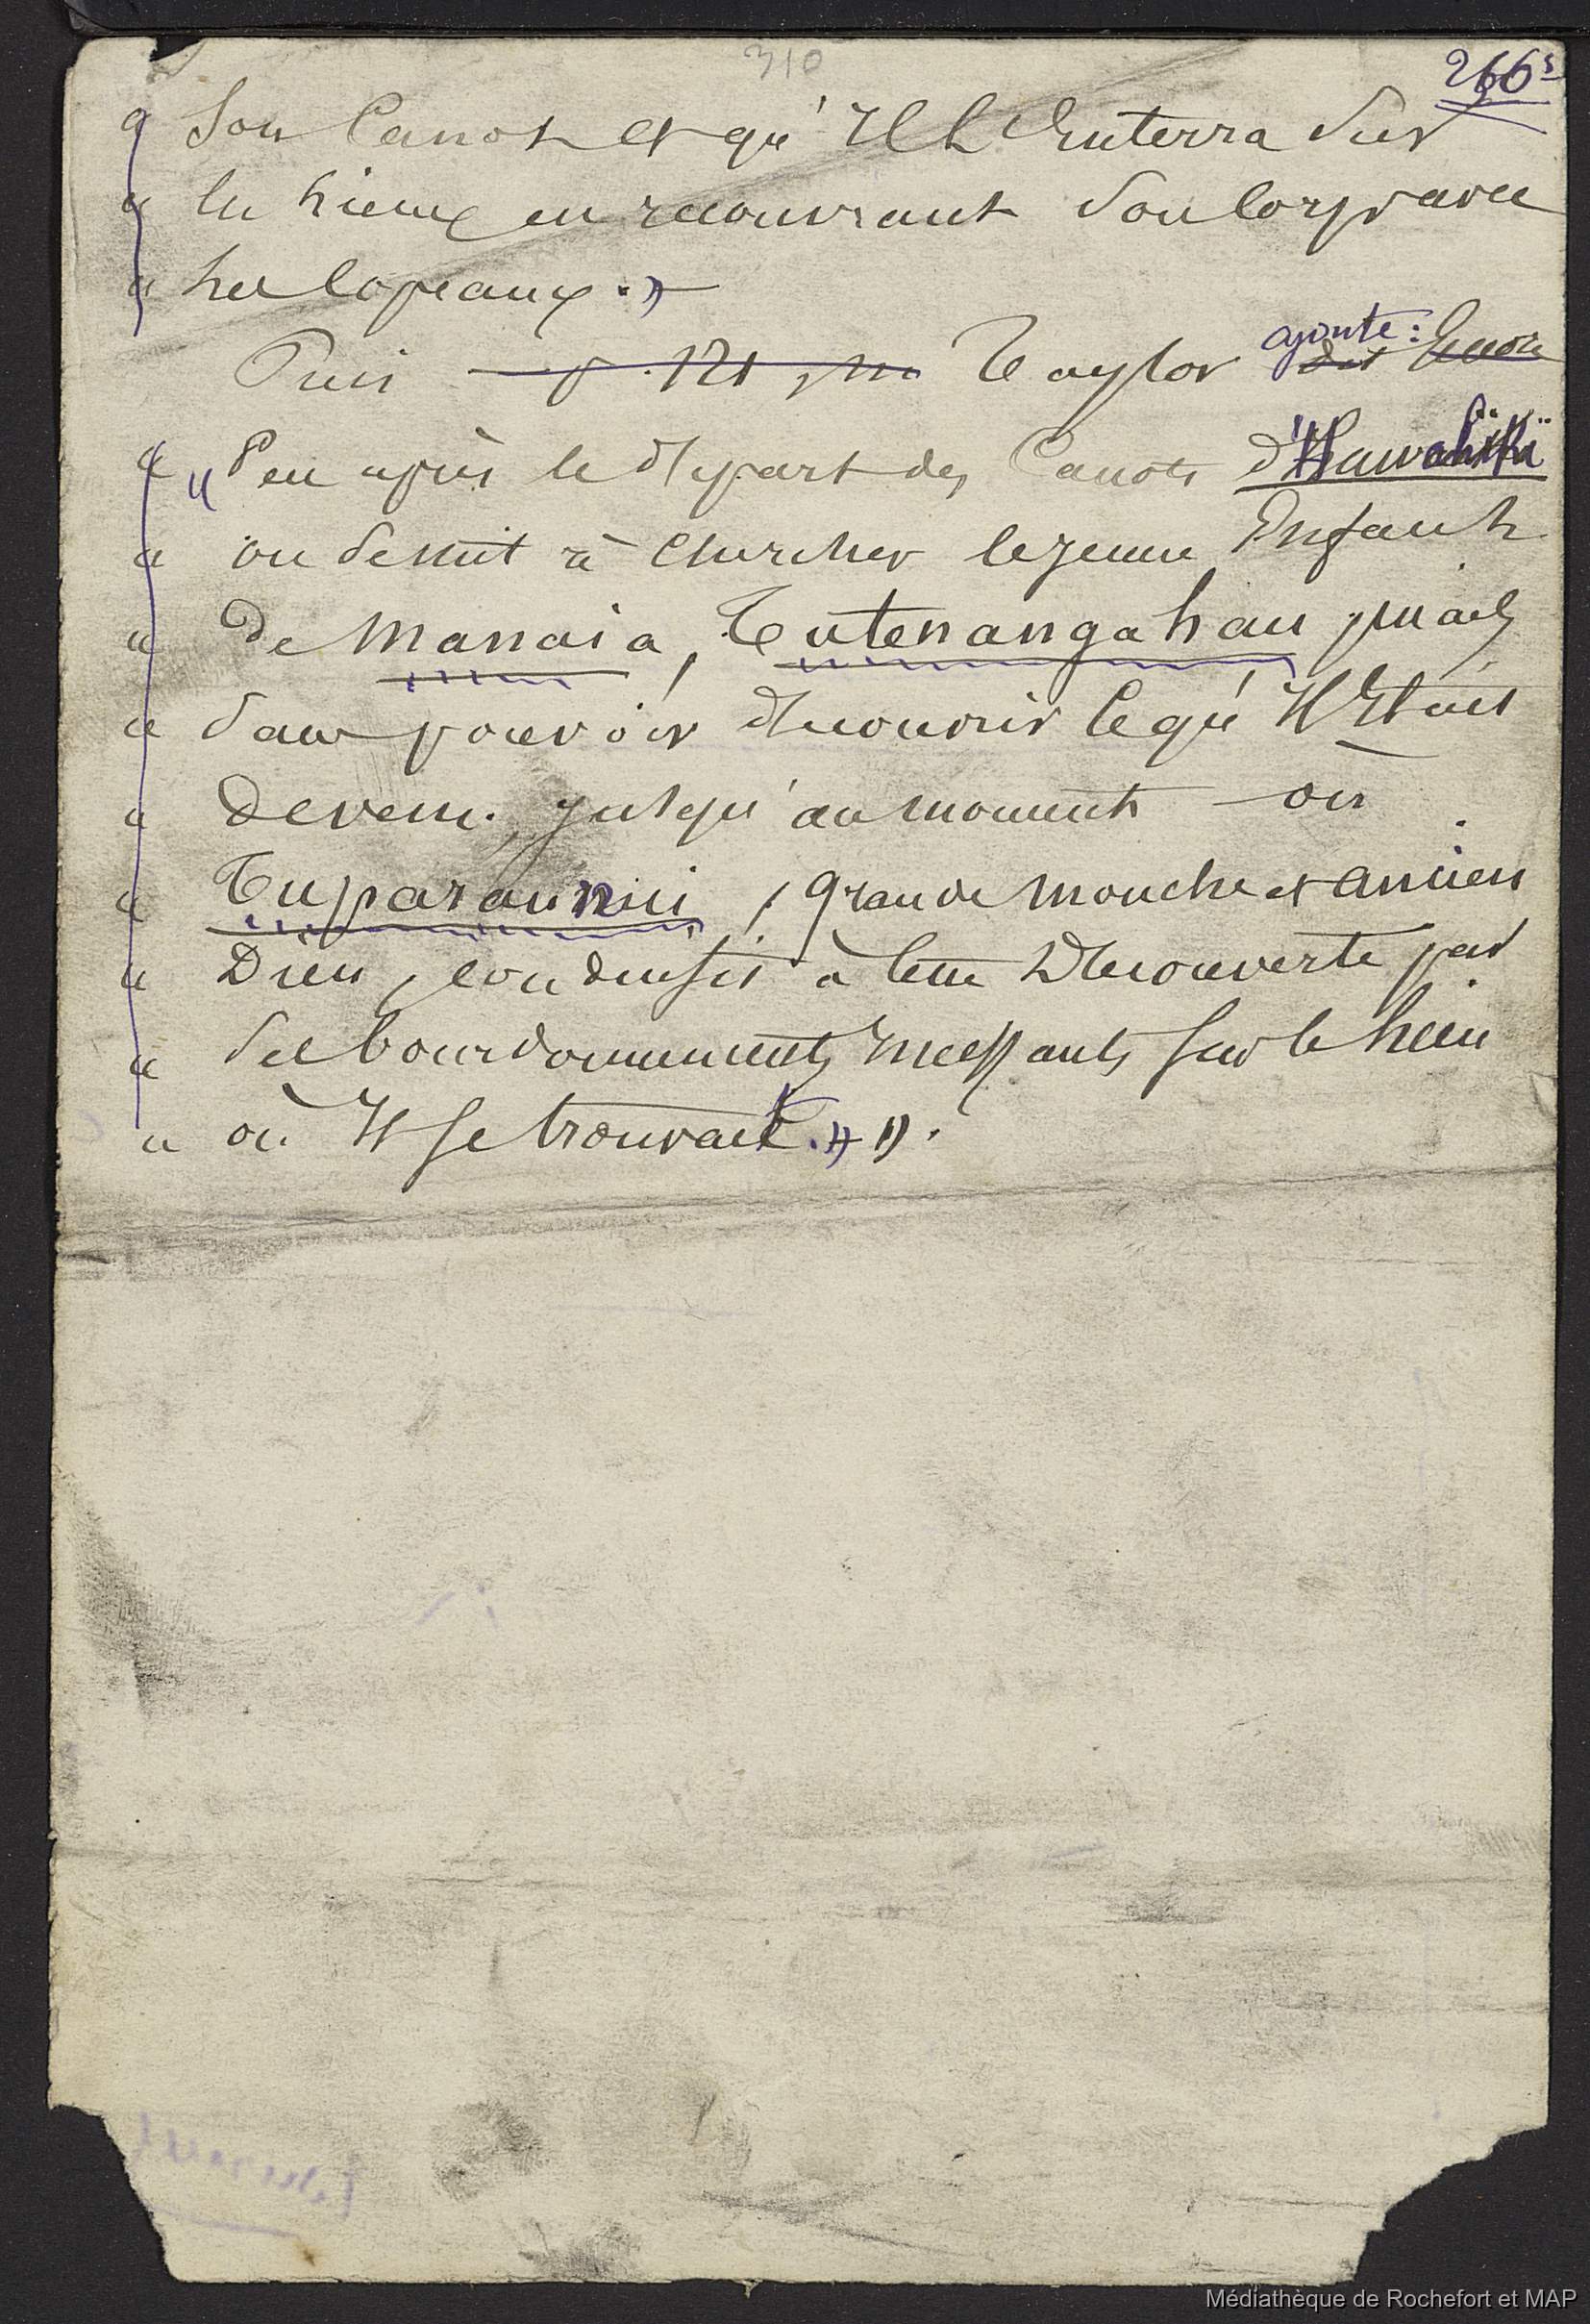 310
266s
« son Canot et qu'Il L'Enterra sur
« les lieux en recouvrant son corps avec
« des copeaux. »
Puis p. 121, Taylor dit ajoute: Encore
« " Peu après le départ des Canots d'Hawahiki
« on se mit à chercher le jeune Enfant
« de Manaia, Tutenangahau, mais
« sans pouvoir découvrir ce qu'Il Etait
« devenu, jusqu'au moment où
« Tuparaunui, grande mouche et ancien
« Dieu, conduisit à cette Découverte par
« ses bourdonnements incessants sur le lieu
« où Il se trouvait. » ».
Médiathèque de Rochefort et MAP